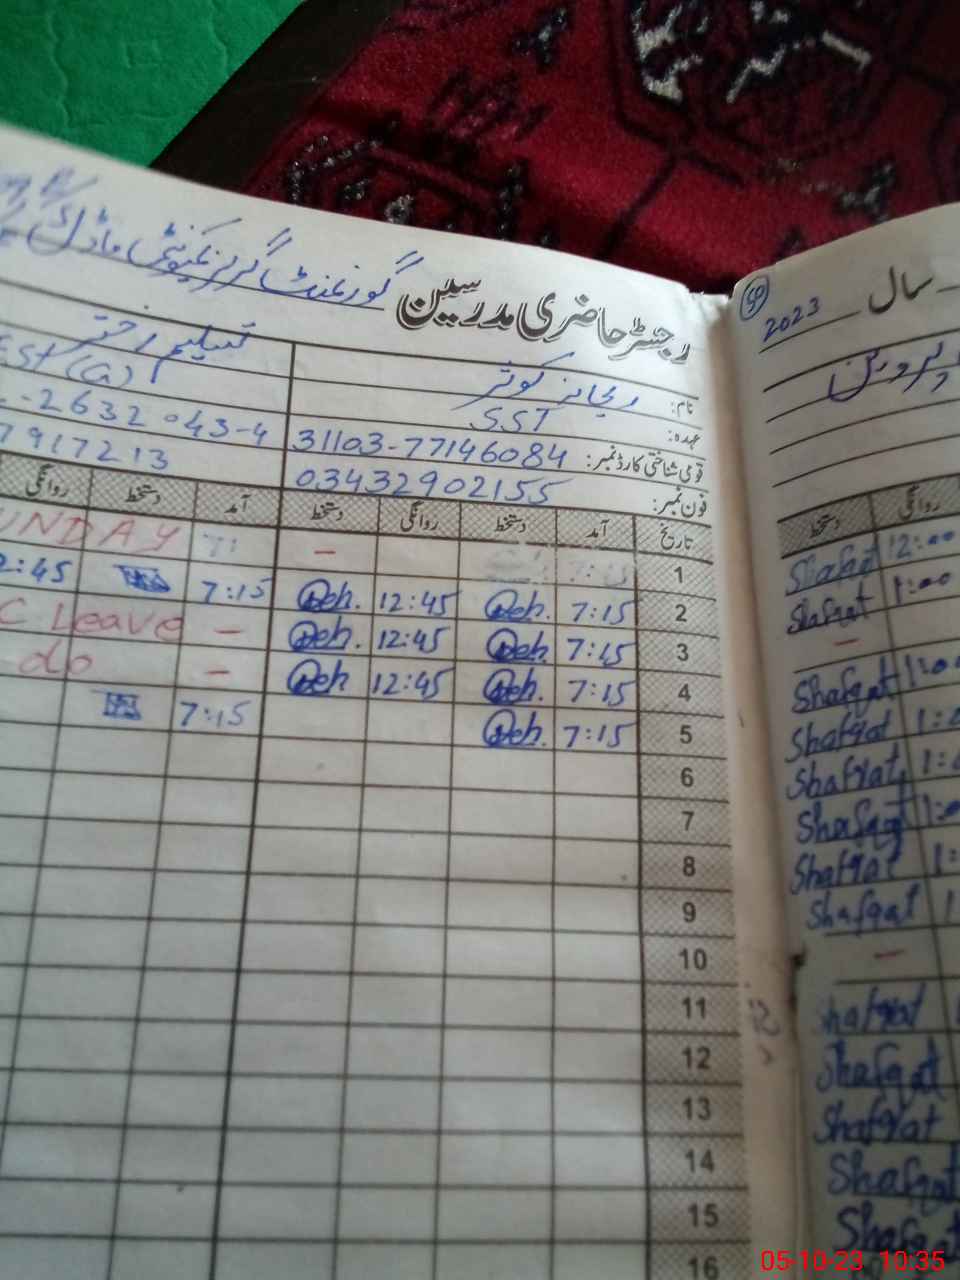 رجسٹر حاضری مدرسین گورنمنٹ گرلز کمیونٹی ماڈل
نام: ریحانہ کوثر
عہدہ: SST
قومی شناختی کارڈ نمبر: 31103-77146084
فون نمبر: 03432902155
تسلیم اختر
SST (G)
-2632043-4
7917213
تاریخ آمد دستخط روانگی دستخط آمد دستخط روانگی
1 7:15 — 7: UNDAY
2 7:15 Reh. 12:45 Reh. 7:15 2:45
3 7:15 Reh. 12:45 Reh. — C Leave
4 7:15 Reh. 12:45 Reh — do
5 7:15 Reh. 7:15
6
7
8
9
10
11
12
13
14
15
16
50
سال 2023
پروین
روانگی دستخط
12:00 Shafqat
1:00 Shafqat
—
1:00 Shafqat
Shafqat
Shafqat
Shafqat
Shafqat
Shafqat
—
Shafqat
Shafqat
Shafqat
Shafqat
Shafqat
05-10-23 10:35